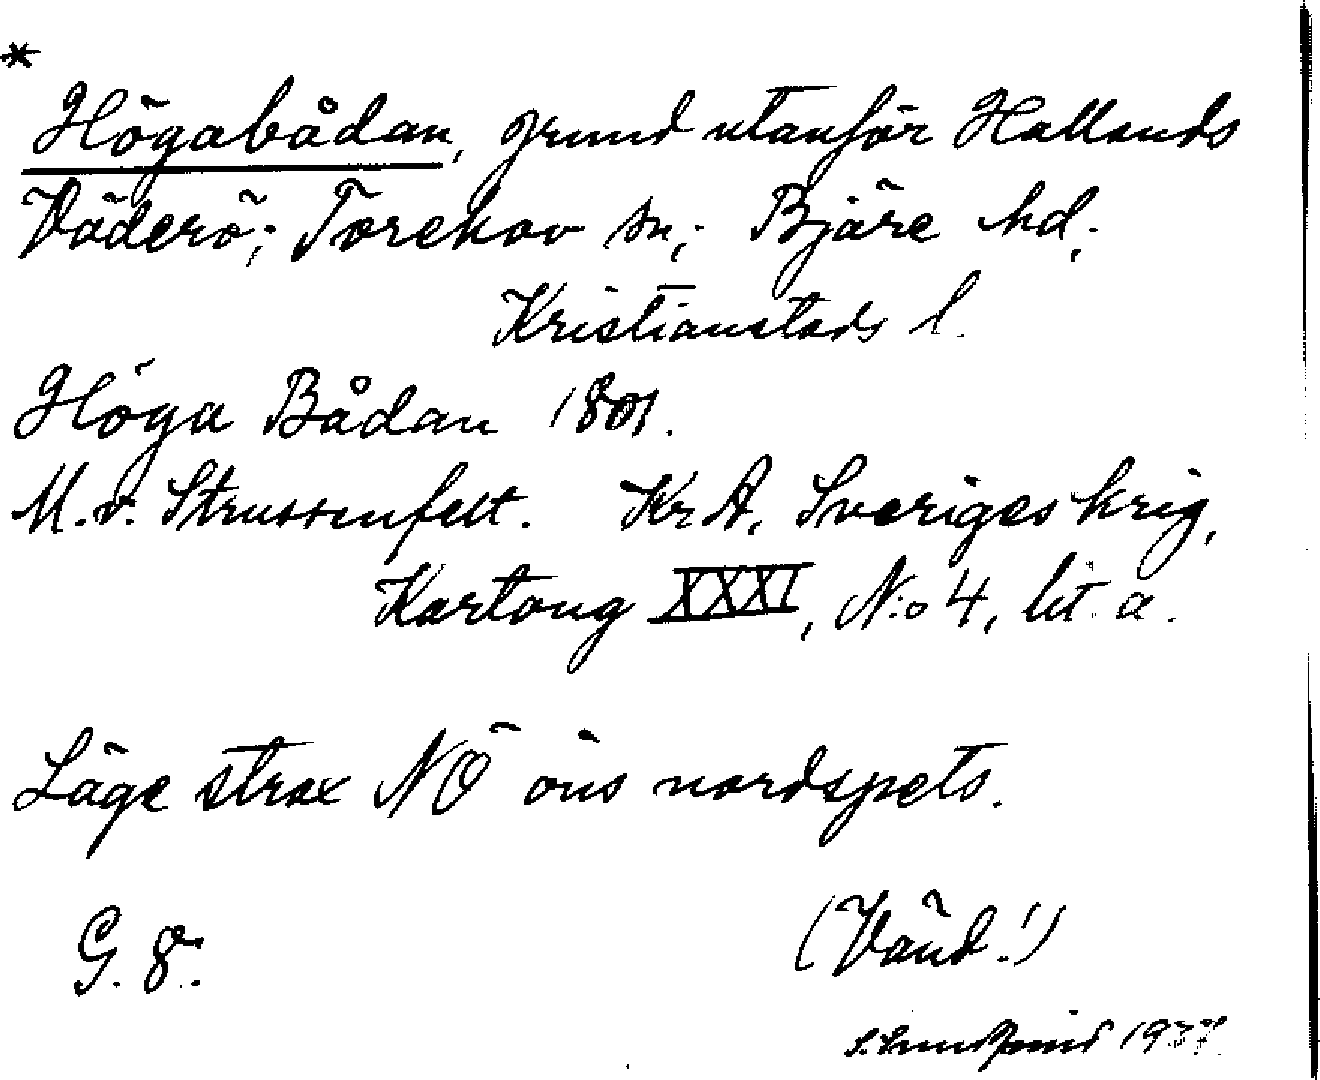 *
Högabådan, grund utanför Hallands
Väderö; Torekov sn; Bjäre hd;
Kristianstads l.
Höga Bådan 1801.
M. v. Strussenfelt. Kr A. Sveriges krig,
Kartong XXXI, N:o 4, lit. a.
Läge strax NÖ öns nordspets.
G. 8.
(Vänd!)
1937